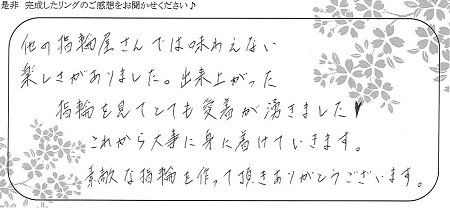 是非 完成したリングのご感想をお聞かせください♪
他の指輪屋さんでは味わえない
楽しさがありました。出来上がった
指輪を見てとても愛着が湧きました♥
これから大事に身に着けていきます。
素敵な指輪を作って頂きありがとうございます。